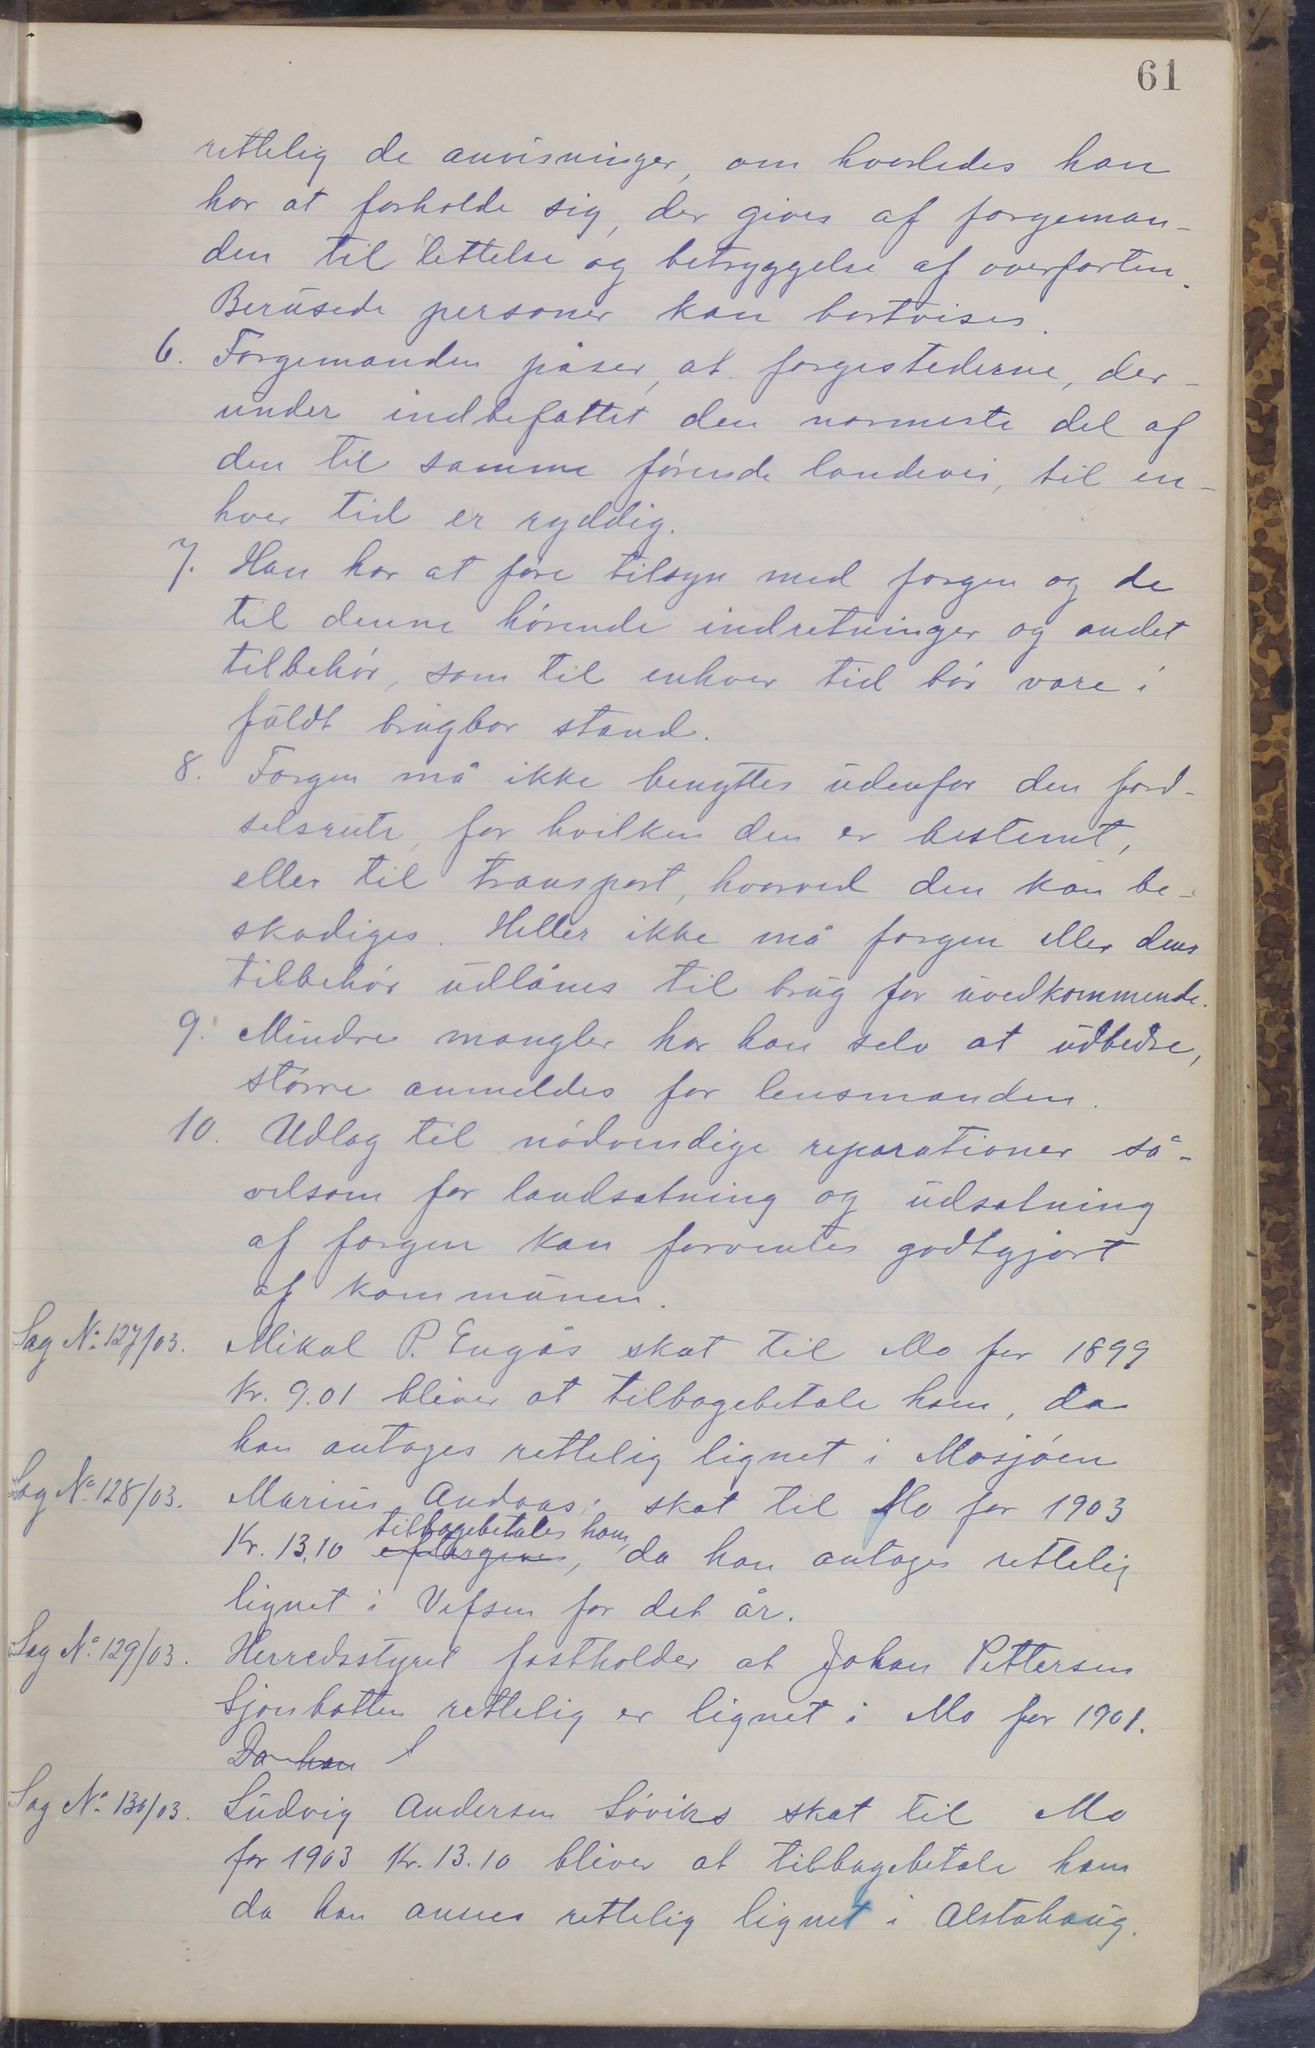 61
rettelig de anvisninger, om hvorledes han
har at forholde sig, der gives af færgeman-
den til lettelse og betryggelse af overfarten.
Berusede personer kan bortvises.
6. Færgemanden påser, at færgestederne, der-
under indbefattet den nærmeste del af
den til samme førende landevei, til en-
hver tid er ryddig.
7. Han har at føre tilsyn med færgen og de
til denne hørende indretninger og andet
tilbehør, som til enhver tid bør være i
fuldt brugbar stand.
8. Færgen må ikke benyttes udenfor den færd-
selsrute, for hvilken den er bestemt,
eller til transport, hvorved den kan be-
skadiges. Heller ikke må færgen eller dens
tilbehør udlånes til brug for uvedkommende.
9. Mindre mangler har han selv at udbedre,
større anmeldes for lensmanden.
10. Udlæg til nødvendige reparationer så-
velsom for landsætning og udsætning
af færgen kan forventes godtgjort
af kommunen.
Sag No. 127/03. Mikal P. Engås skat til Mo for 1899
Kr. 9.01 bliver at tilbagebetale ham, da
han antages rettelig lignet i Mosjøen
Sag No. 128/03. Marius Andaas' skat til Mo for 1903
tilbagebetales ham,
Kr. 13.10 eftergives, da han antages rettelig
lignet i Vefsen for det år.
Sag No. 129/03. Herredsstyret fastholder at Johan Pettersen
Sjonbotten rettelig er lignet i Mo for 1901.
Da han
Sag No. 130/03. Ludvig Andersen Søviks skat til Mo
for 1903 Kr. 13.10 bliver at tilbagebetale ham
da han ansees rettelig lignet i Alstahaug.